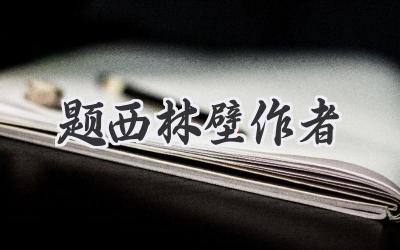 题西林壁作者